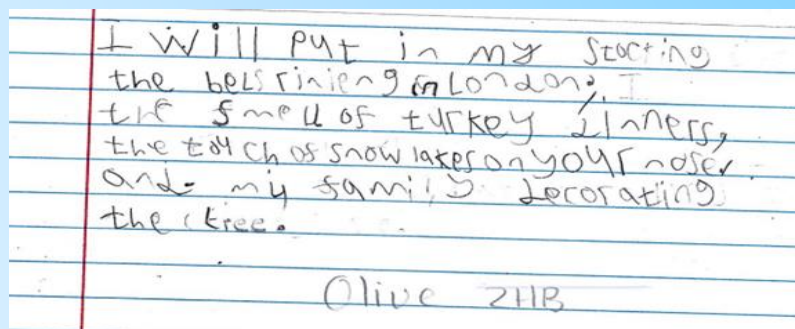 I will put in my Stocting
the bels rinieng in London,
the smell of turkey dinners,
the touch of snow lakes on your nose,
and my family decorating
the tree.
Olive 2HB